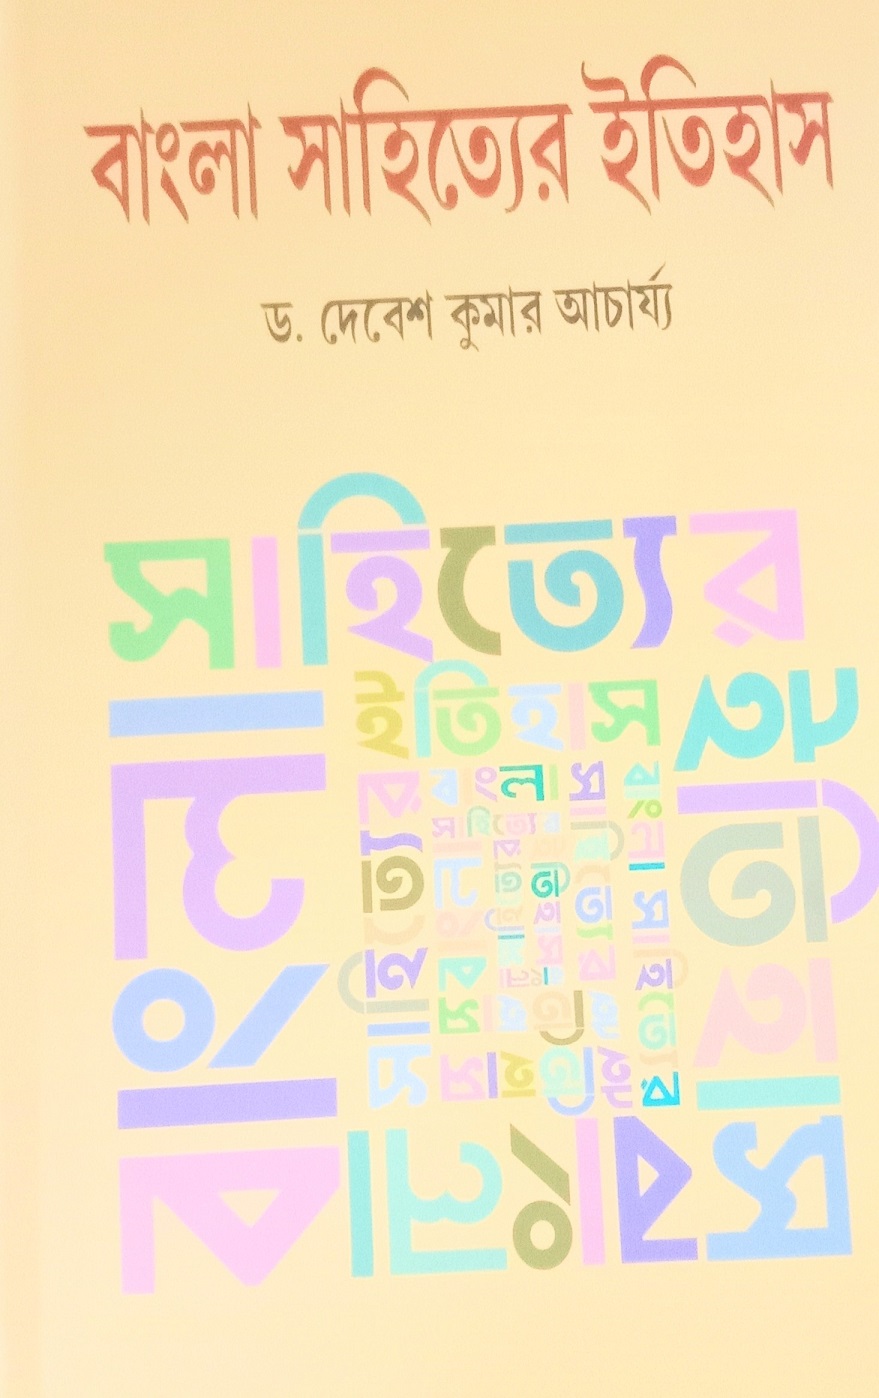 বাংলা সাহিত্যের ইতিহাস
ড. দেবেশ কুমার আচার্য্য
বাংলা সাহিত্যের ইতিহাস
বাংলা সাহিত্যের ইতিহাস